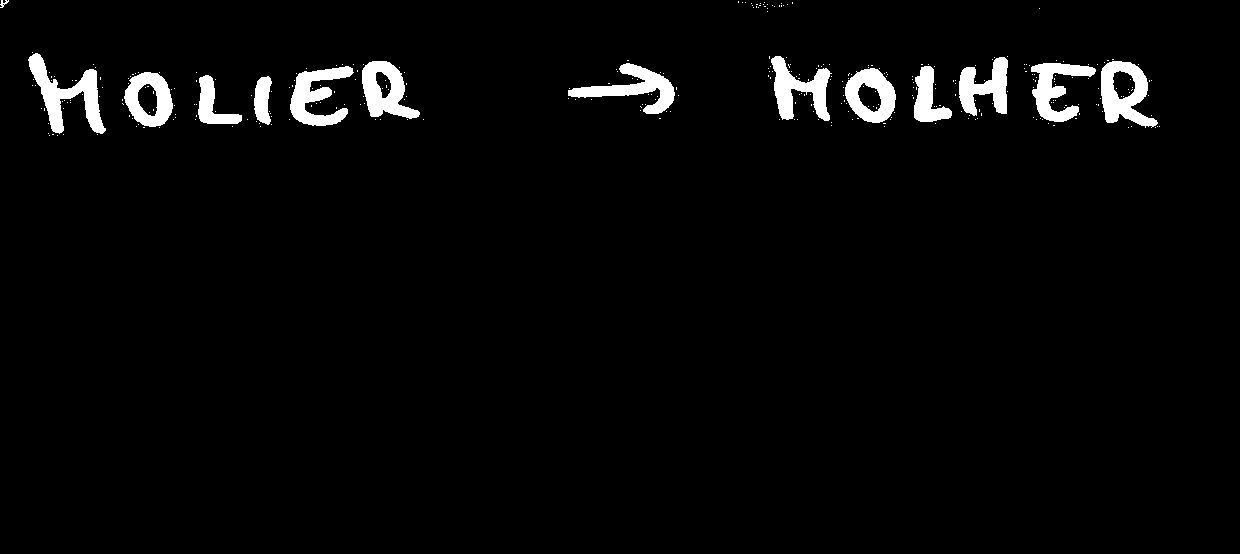 MOLIER → MOLHER